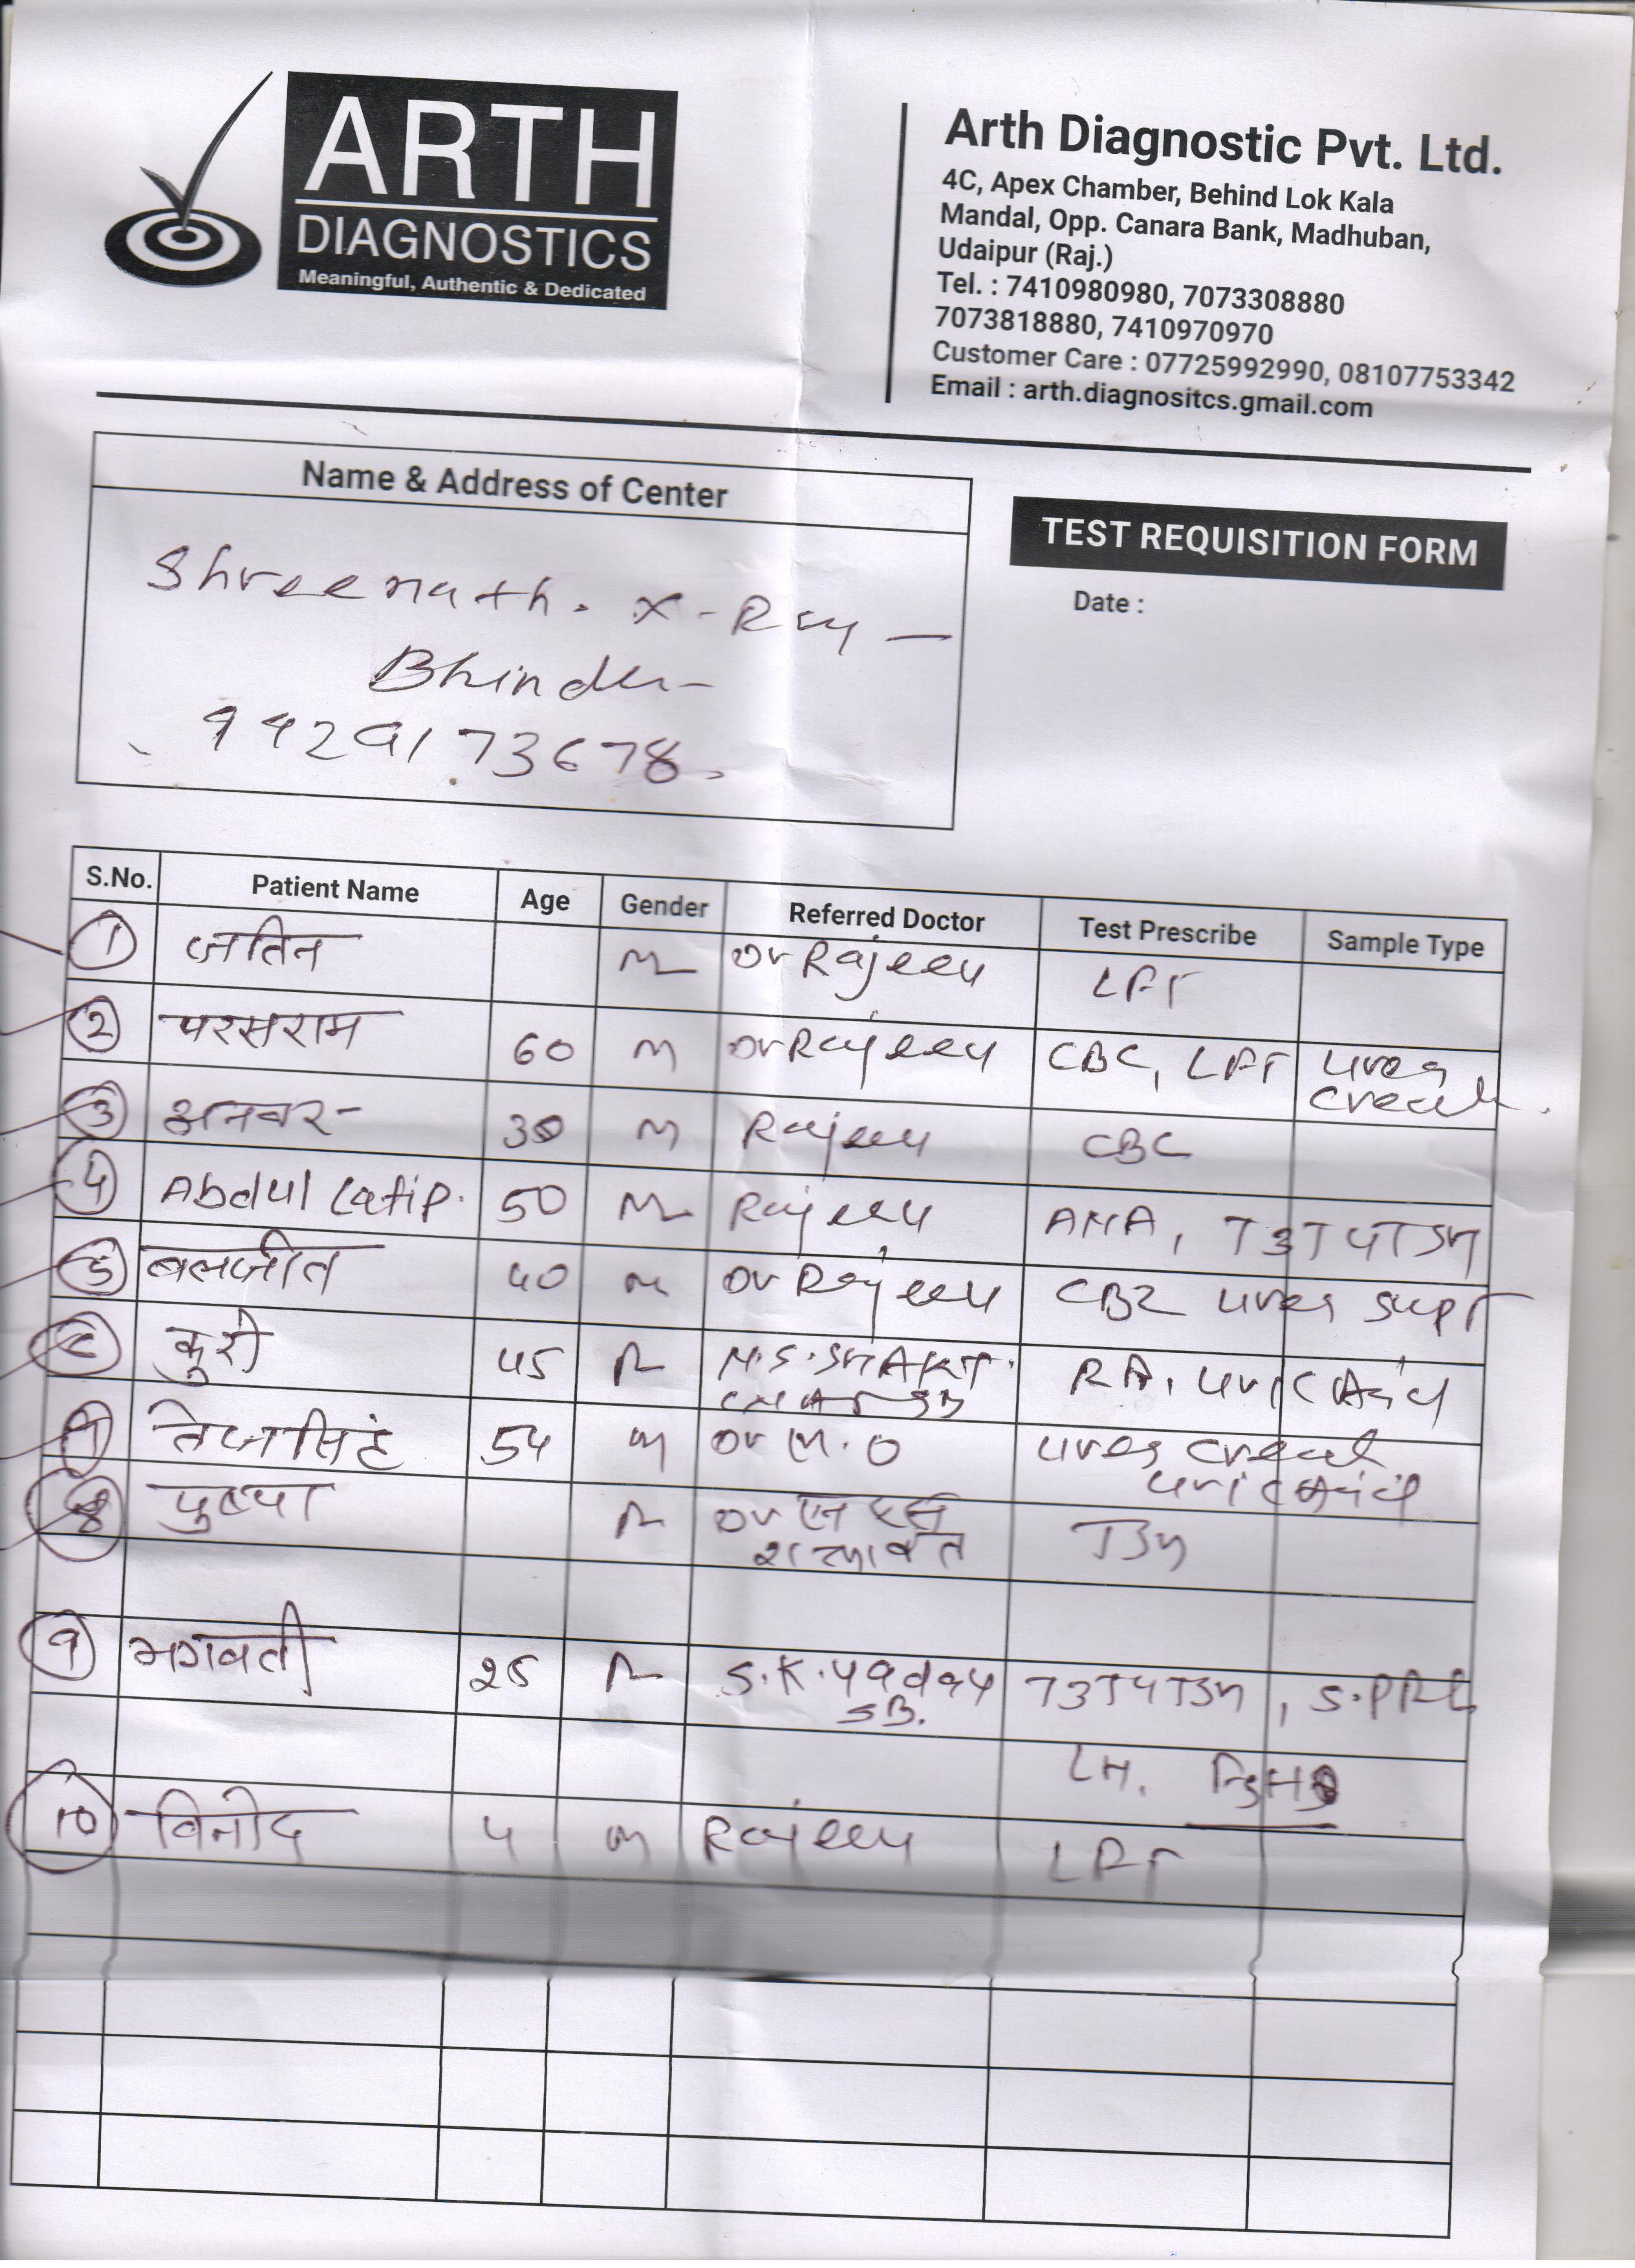 ARTH
DIAGNOSTICS
Meaningful, Authentic & Dedicated
Arth Diagnostic Pvt. Ltd.
4C, Apex Chamber, Behind Lok Kala
Mandal, Opp. Canara Bank, Madhuban,
Udaipur (Raj.)
Tel. : 7410980980, 7073308880
7073818880, 7410970970
Customer Care : 07725992990, 08107753342
Email : arth.diagnositcs.gmail.com
Name & Address of Center
Shreenath. X-Ray -
Bhinder -
9429173678.
TEST REQUISITION FORM
Date :
S.No. Patient Name Age Gender Referred Doctor Test Prescribe Sample Type
1 जतिन M Dr Rajeev LFT
2 परसराम 60 M Dr Rajeev CBC, LFT urea
creat.
3 अनवर - 30 M Rajeev CBC
4 Abdul Latip. 50 M Rajeev ANA, T3T4TSH
5 बलजीत 40 M Dr Rajeev CBC urea
6 45 F RA, uric Acid
7 तेजसिंह 54 M Dr M.O urea creat
uric Acid
8 पुष्पा F Dr एन एस
TSH
9 भगवती 25 F S.K. Yadav T3T4TSH, S.PRL
SB.
LH, FSH
10 विनोद 4 M Rajeev LFT